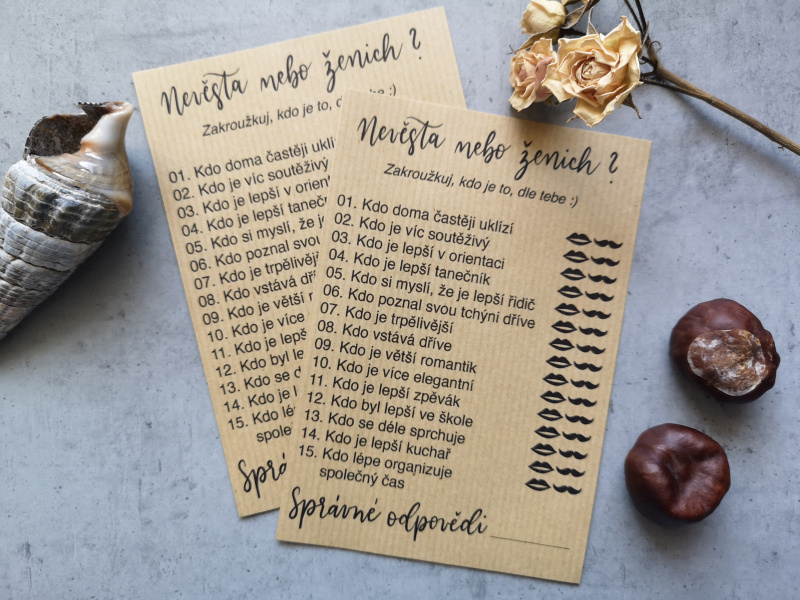 Nevěsta nebo ženich ?
Zakroužkuj, kdo je to, :)
01. Kdo doma častěji
02. Kdo je víc soutěživý
03. Kdo je lepší v
04. Kdo je lepší
05. Kdo si myslí, že
06. Kdo poznal svou
07. Kdo je
08. Kdo vstává
09. Kdo je větší
10. Kdo je více
11. Kdo je
12. Kdo byl
13. Kdo se
14. Kdo je
15. Kdo
Nevěsta nebo ženich ?
Zakroužkuj, kdo je to, dle tebe :)
01. Kdo doma častěji uklízí
02. Kdo je víc soutěživý
03. Kdo je lepší v orientaci
04. Kdo je lepší tanečník
05. Kdo si myslí, že je lepší řidič
06. Kdo poznal svou tchýni dříve
07. Kdo je trpělivější
08. Kdo vstává dříve
09. Kdo je větší romantik
10. Kdo je více elegantní
11. Kdo je lepší zpěvák
12. Kdo byl lepší ve škole
13. Kdo se déle sprchuje
14. Kdo je lepší kuchař
15. Kdo lépe organizuje
společný čas
Správné odpovědi